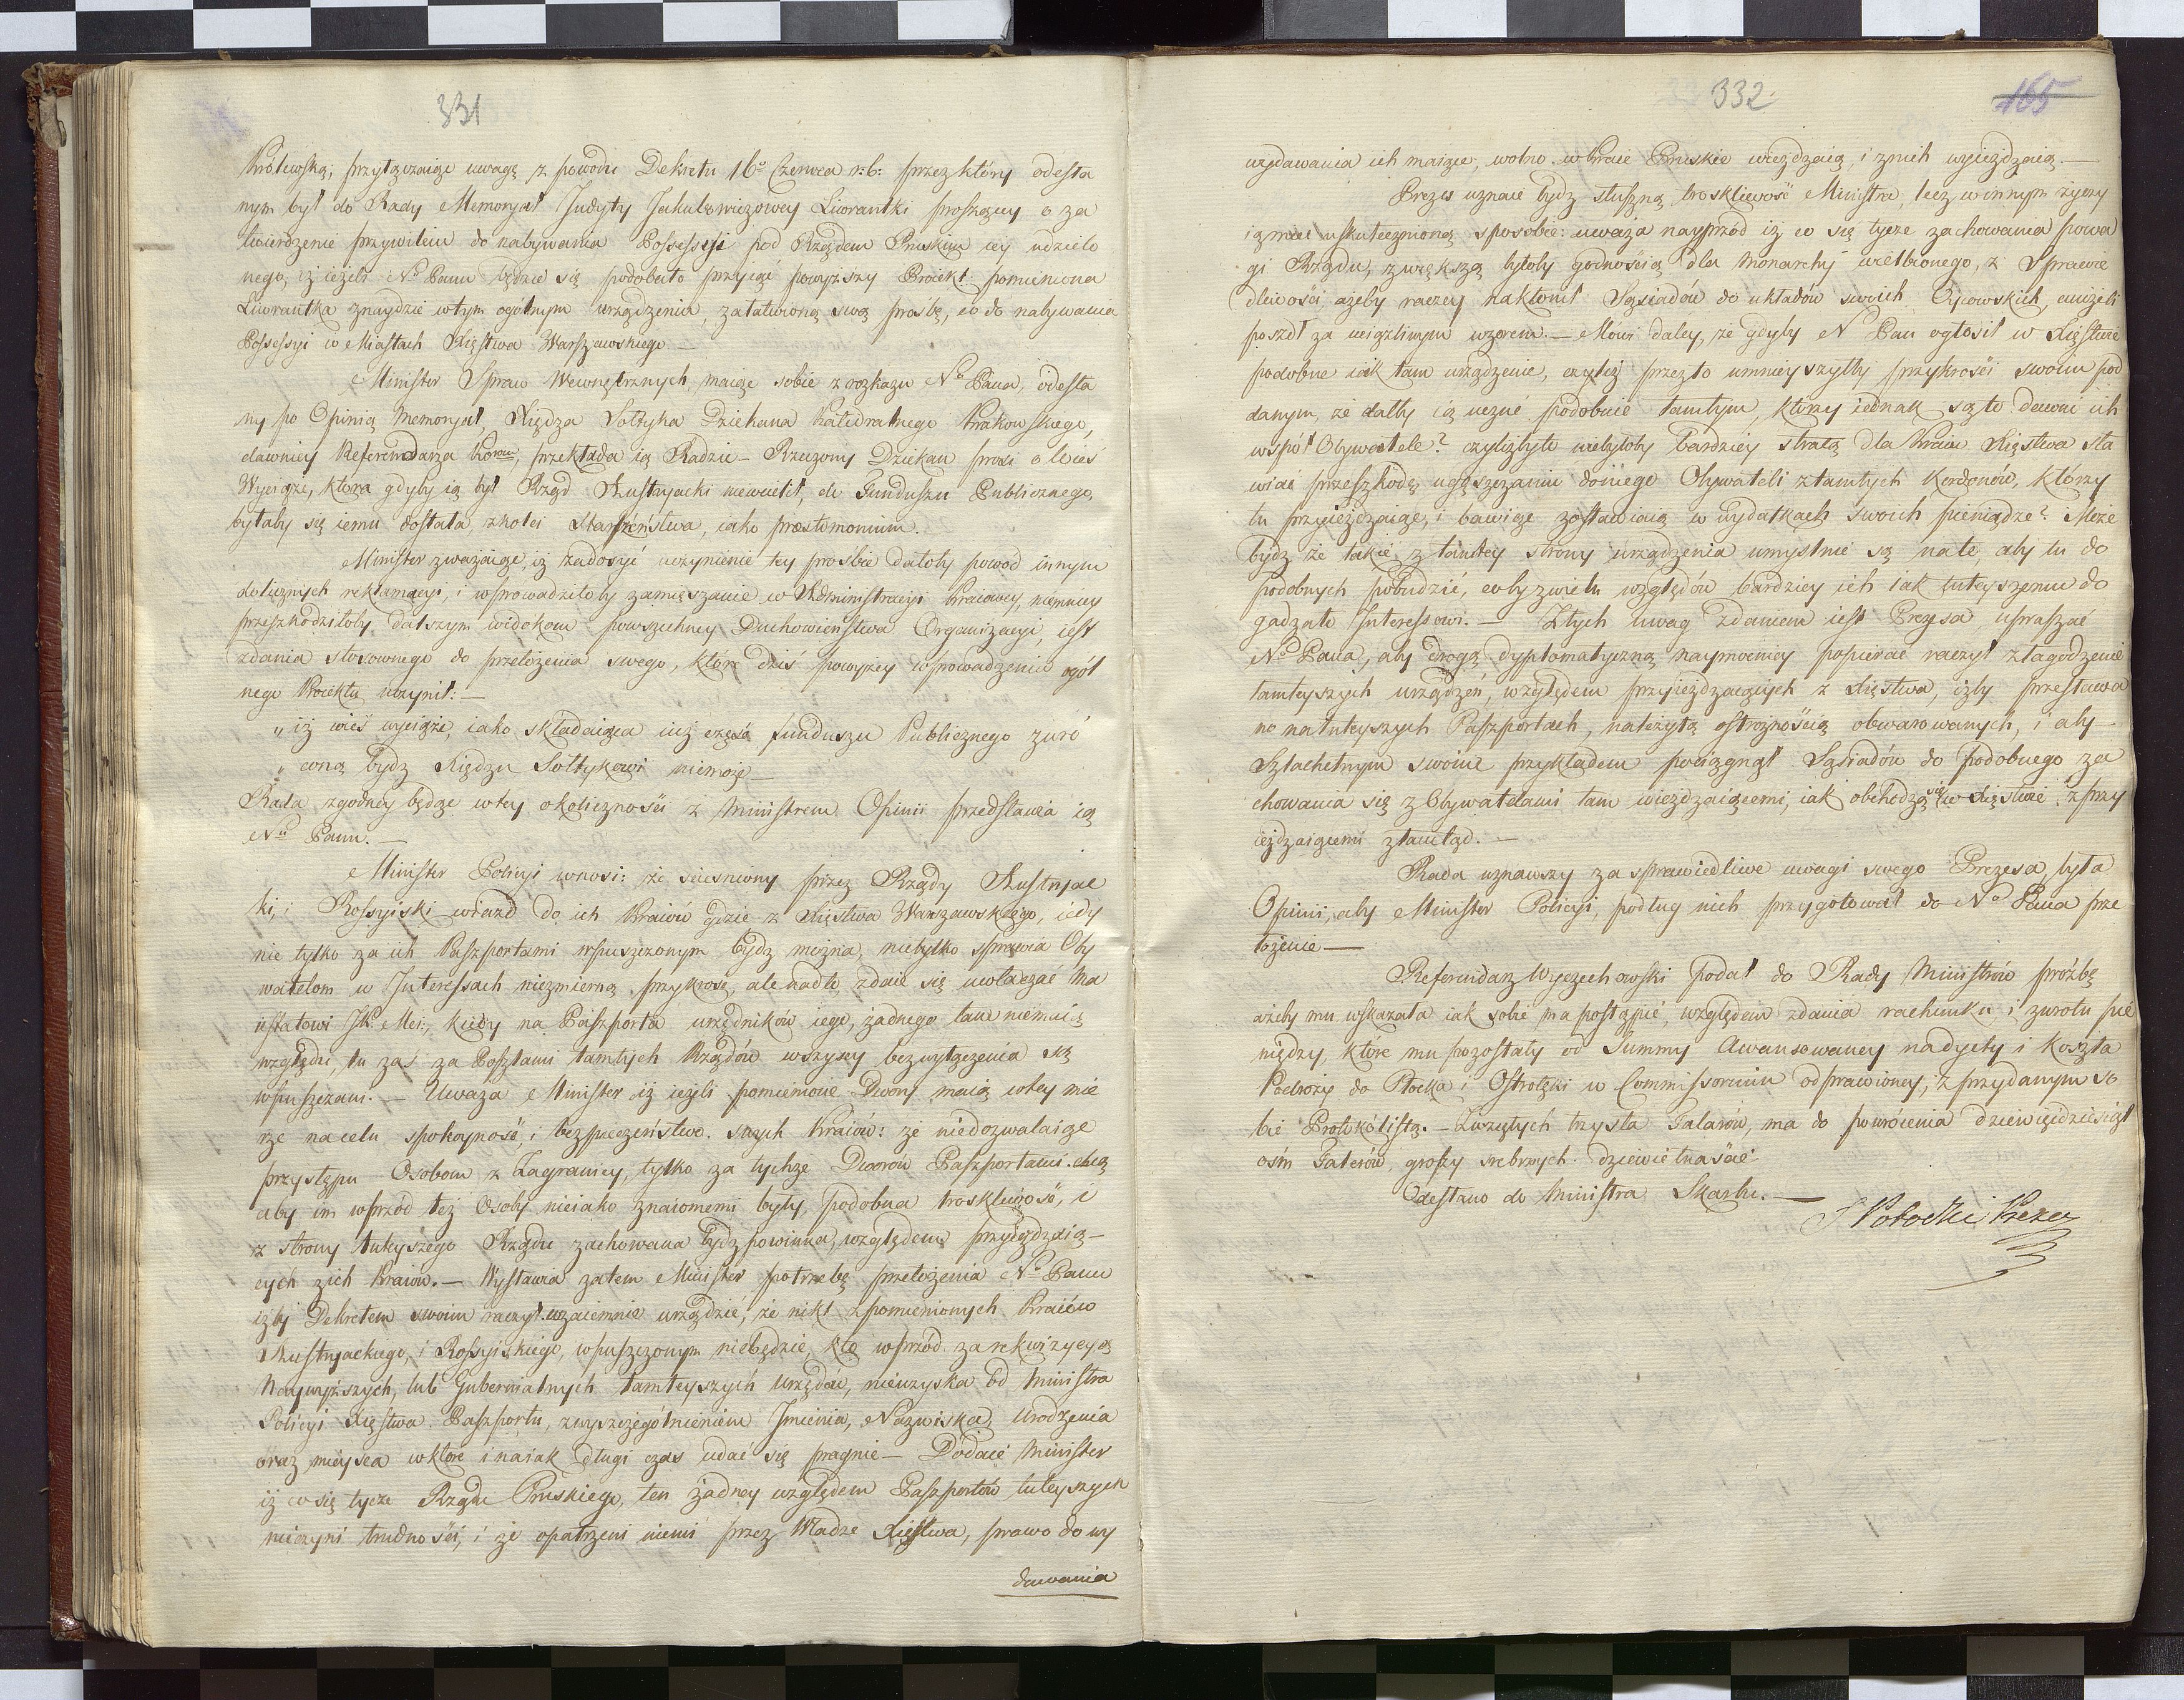 331
Królewską, przyłączaiąc uwagę z powodu Dekretu 16º Czerwca r: b: przez który odesła
nym był do Rady Memoryał Judyty Jakubowiczowey Liwerantki proszącey o za
twierdzenie przywileiu do nabywania Possessyi pod Rządem Pruskim iey udzielo
nego, iż ieżeli Nº Panu będzie się podobało przyiąć powyższy Proiekt pomieniona
Liwerantka znaydzie w tym ogólnym urządzeniu, załatwioną swą prośbę, co do nabywania
Possessyi w Miastach Xięstwa Warszawskiego. —
Minister Spraw Wewnętrznych, maiąc sobie z rozkazu Nº Pana, odesła
ny po Opinią Memoryał, Xiędza Sołtyka Dziekana Katedralnego Krakowskiego,
dawniey Referendarza Koron:, przekłada ią Radzie — Rzeczony Dziekan prosi o wieś
Wyciąże, która gdyby ią był Rząd Austryacki niewcielił, do Funduszu Publicznego,
byłaby się iemu dostała z kolei Starszeństwa, iako praestimonium.
Minister zważaiąc, iż zadosyć uczynienie tey prośbie dałoby powod innym
licznych reklamacyi, i wprowadziłoby zamięszanie w Administracyi Kraiowey, niemniey
przeszkodziłoby dalszym widokom powszechney Duchowieństwa Organizacyi, iest
zdania stosownego do przełożenia swego, które dziś powyżey w prowadzeniu ogól
nego Proiektu uczynił: —
„ iż wieś wyciąże, iako składaiąca iuż część funduszu Publicznego zwró
„ coną bydz Xiędzu Sołtykowi niemoże —
Rada zgodney będąc w tey okoliczności z Ministrem Opinii przedstawia ią
Nu Panu. —
Minister Policyi wnosi: że scieśniony przez Rządy Austryac
ki, i Rossyiski wiazd do ich Kraiów gdzie z Xięstwa Warszawskiego, iedy
nie tylko za ich Paszportami wpuszczonym bydz można, nietylko sprawia Oby
watelom w Interessach niezmierną przykrość, ale nadto zdaie się uwłaczać Ma
iestatowi JK: Mci:, kiedy na Paszporta urzędników iego, żadnego tam niemaią
względu, tu zas za Paszportami tamtych Rządów wszyscy bez wyłączenia są
wpuszczani. — Uważa Minister iż ieżeli pomienione Dwory maią w tey mie
rze na celu spokoyność, i bezpieczeństwo swych Kraiów: że niedozwalaiąc
przystępu Osobom z Zagranicy, tylko za tychże Dworów Paszportami chcą
aby im wprzód też Osoby nieiako znaiomemi były, podobna troskliwość, i
z strony tuteyszego Rządu zachowana bydz powinna, względem przyieżdzaią-
cych z ich Kraiów. — Wystawia zatem Minister potrzebę przełożenia Nº Panu
iżby Dekretem swoim raczył wzaiemnie urządzić, że nikt z pomienionych Kraiów
Austryackiego, i Rossyiskiego, wpuszczonym niebędzie, kto wprzód za rekwizycyą
Naywyższych, lub Gubernialnych tamteyszych Urzędów, nieuzyska od Ministra
Policyi Xięstwa Paszportu, z wyszczególnieniem Imienia, Nazwiska, Urodzenia
oraz mieysca w które i na iak długi czas udać się pragnie — Dodaie Minister
iż co się tycze Rządu Pruskiego, ten żadney względem Paszportów tuteyszych
nieczyni trudności, i że opatrzeni niemi przez Władze Xięstwa, prawo do wy
dawania
332
165
wydawania ich maiące, wolno w Kraie Pruskie wieżdzaią, i z nich wyieżdzaią. —
Prezes uznaie bydz słuszną troskliwość Ministra, lecz w innym życzy
ią mieć uskutecznioną sposobie: uważa nayprzód iż co się tycze zachowania powa
gi Rządu, z większą byłoby godnością dla Monarchy wielbionego, z Sprawie
dliwości ażeby raczey nakłonił Sąsiadów do układów swoich Oycowskich, aniżeli
poszedł za uciążliwym wzorem. — Mówi daley, że gdyby N Pan ogłosił w Xięstwie
podobne iak tam urządzenie, czyliż przez to umnieyszyłby przykrości swoim pod
danym, że dałby ią uczuć podobnie tamtym, którzy iednak są to dawni ich
współ Obywatele? czyliżbyto niebyłoby bardziey stratą dla Kraiu Xięstwa sta
wiać przeszkodę uczęszczaniu doniego Obywateli z tamtych Kordonów, którzy
tu przyieżdzaiąc, i bawiąc zostawiaią w wydatkach swoich pieniądze? Może
bydz że takie z tamtey strony urządzenia umyślnie są na to, aby tu do
podobnych pobudzić, coby z wielu względów bardziey ich iak tuteyszemu do
gadzało Interessowi. — Z tych uwag zdaniem iest Prezesa upraszać
Nº Pana, aby drogą dyplomatyczną naymocniey popierać raczył złagodzenie
tamteyszych urządzeń, względem przyieżdzaiących z Xięstwa, iżby przestawa
no na tuteyszych Paszportach, należytą ostrożnością obwarowanych, i aby
Szlachetnym swoim przykładem pociągnął Sąsiadów do podobnego za
chowania się z Obywatelami tam wieżdzaiącemi, iak obchodzą się w Xięstwie z przy
ieżdzaiącemi z tamtąd. —
Rada uznawszy za sprawiedliwe uwagi swego Prezesa, była
Opinii, aby Minister Policyi, podług nich przygotował do Nº Pana prze
łożenie —
Referendarz Wyczechowski podał do Rady Ministrów prośbę
ażeby mu wskazała iak sobie ma postąpić, względem zdania rachunku i zwrotu pie
niędzy, które mu pozostały od Summy Awansowaney na dyety i koszta
Podróży do Płocka i Ostrołęki w Commissorium odprawioney, z przydanym so
bie Protokólistą. — Z wziętych trzysta Talarów, ma do powrócenia dziewięćdziesiąt
ośm Talerów, groszy srebrnych dziewietnaście
Odesłano do Ministra Skarbu. —
S Potocki Prezes